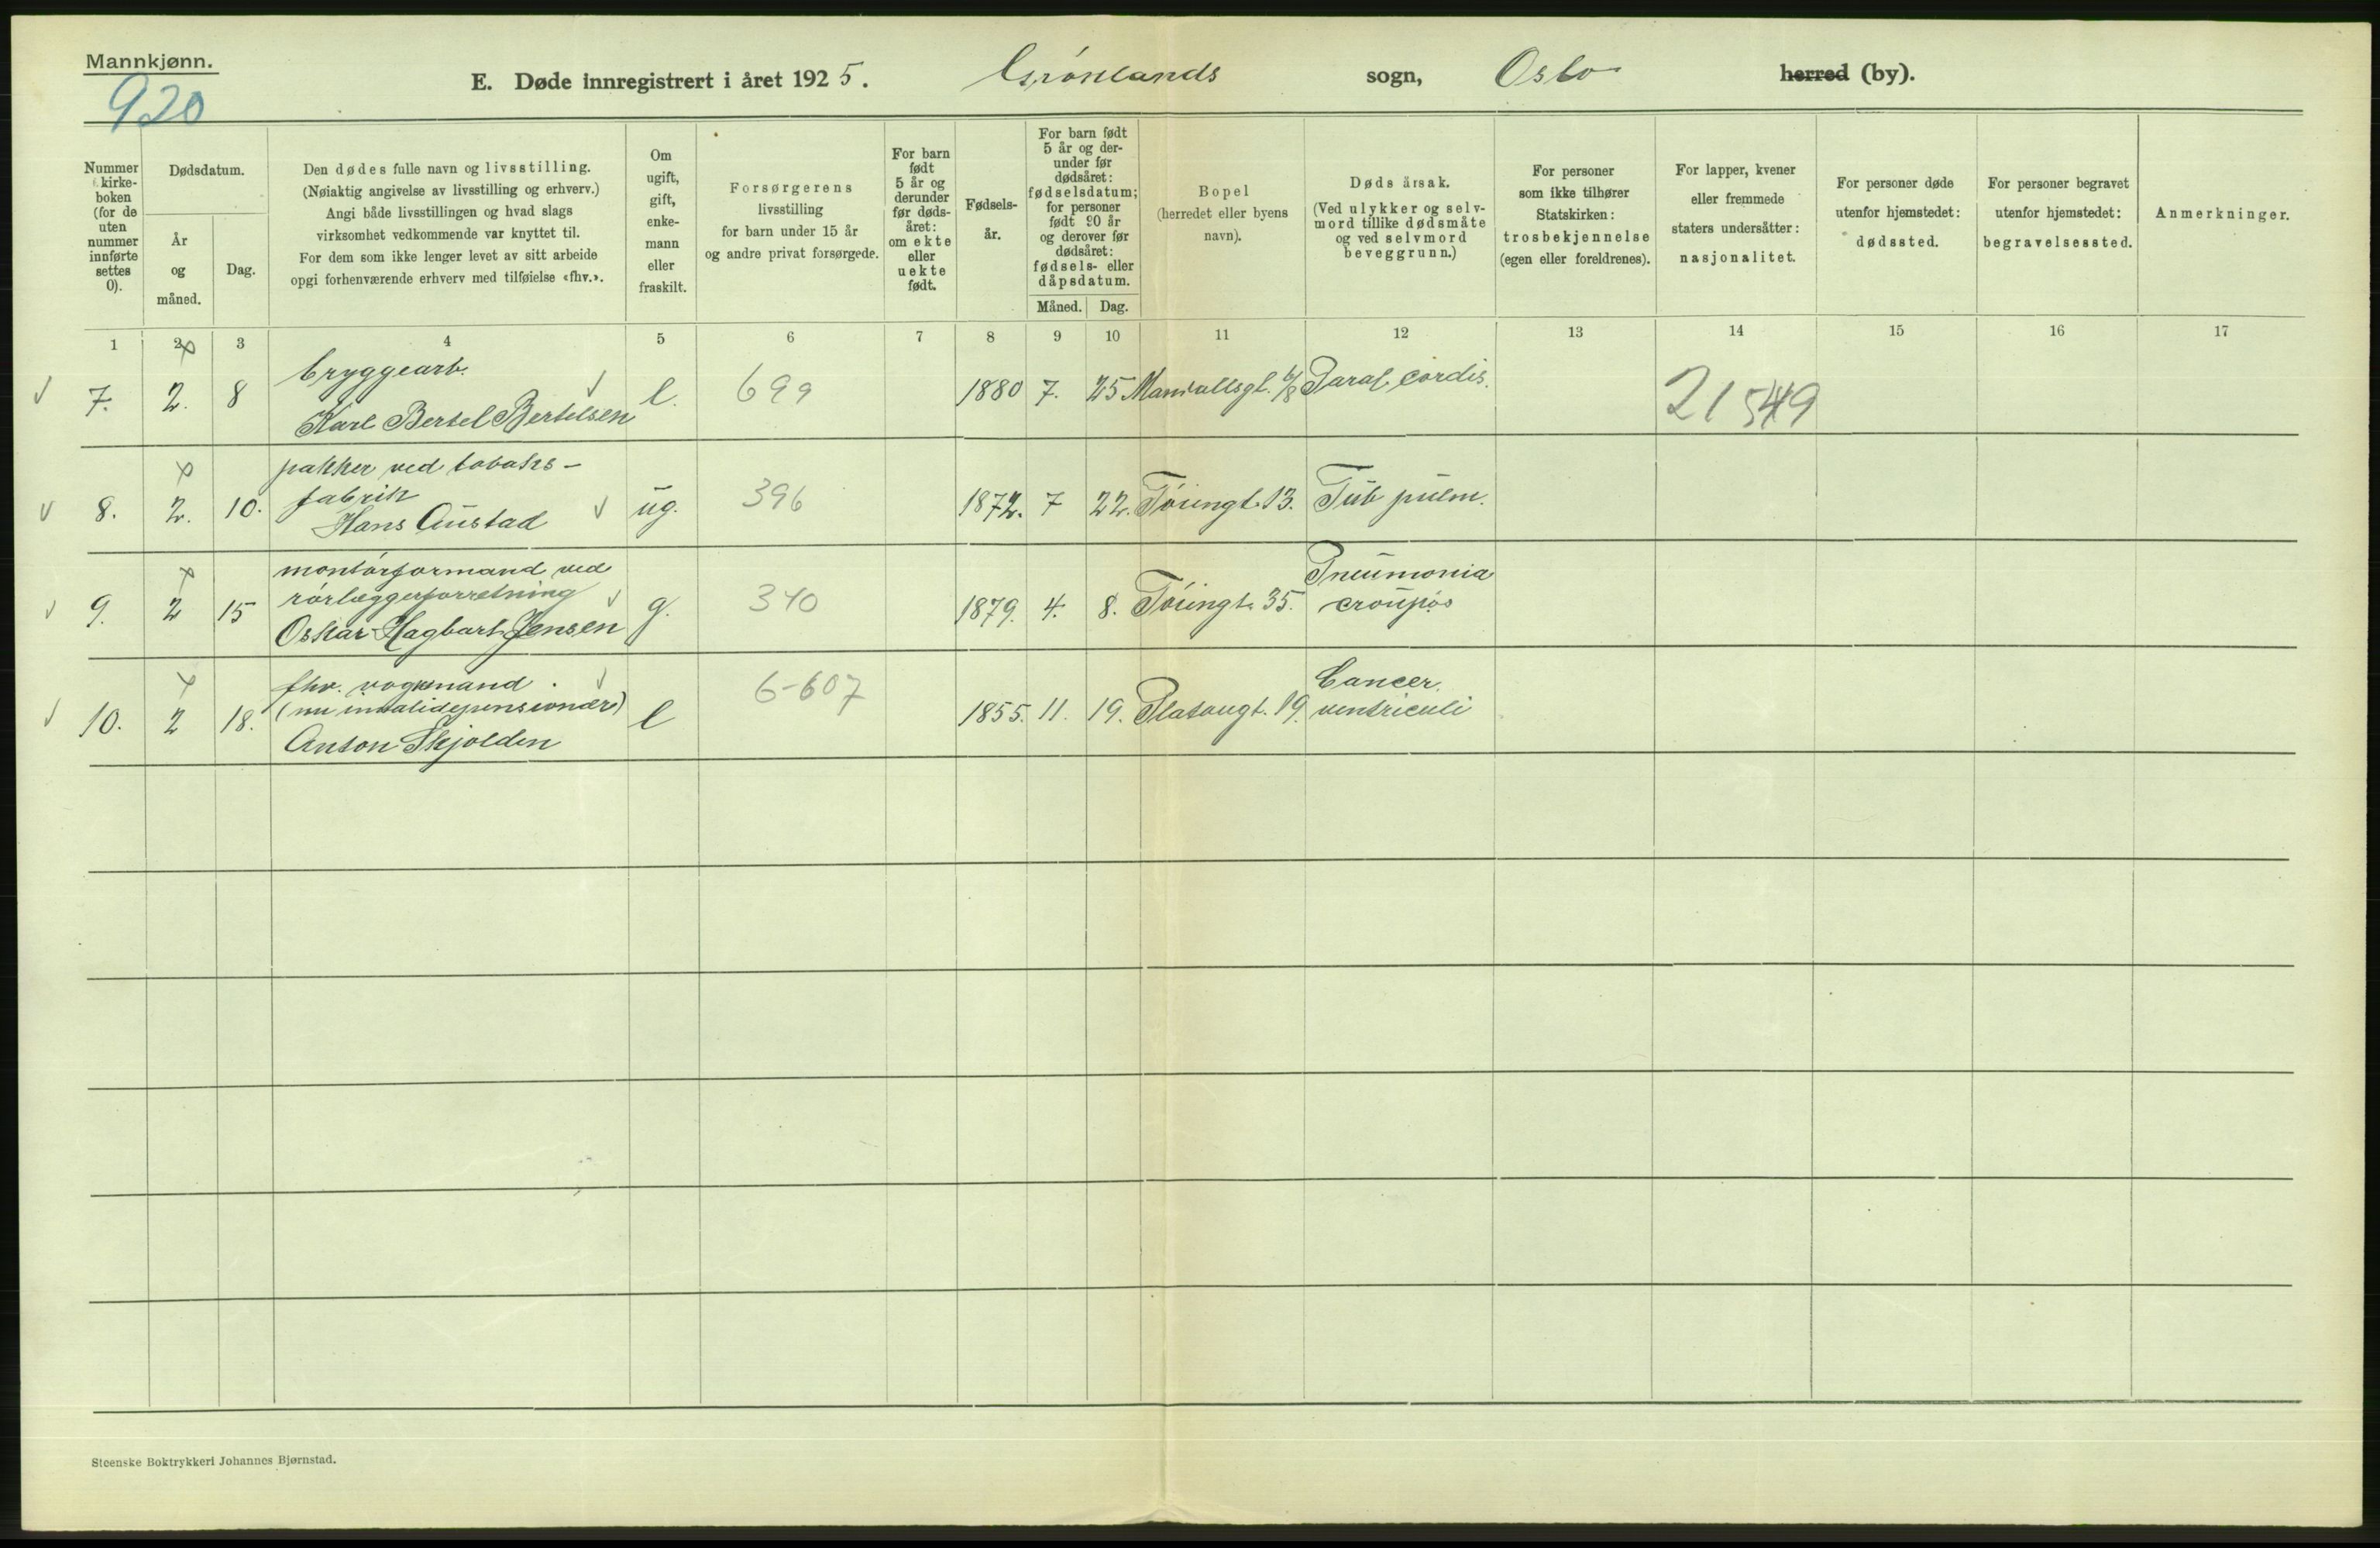 Mannkjønn.
920
E. Døde innregistrert i året 1925. Grønlands sogn, Oslo herred (by).
Nummer
i kirke-
boken
(for de
uten
nummer
innførte
settes
0).
Dødsdatum.
År
og
måned.
Dag.
Den dødes fulle navn og livsstilling.
(Nøiaktig angivelse av livsstilling og erhverv.)
Angi både livsstillingen og hvad slags
virksomhet vedkommende var knyttet til.
For dem som ikke lenger levet av sitt arbeide
opgi forhenværende erhverv med tilføielse «fhv.».
Om
ugift,
gift,
enke-
mann
eller
fraskilt.
Forsørgerens
livsstilling
for barn under 15 år
og andre privat forsørgede.
For barn
født
5 år og
derunder
før døds-
året:
om ekte
eller
uekte
født.
Fødsels-
år.
For barn født
5 år og der-
under før
dødsåret:
fødselsdatum;
for personer
født 90 år
og derover før
dødsåret:
fødsels- eller
dåpsdatum.
Måned. Dag.
Bopel
(herredet eller byens
navn).
Dødsårsak.
(Ved ulykker og selv-
mord tillike dødsmåte
og ved selvmord
beveggrunn.)
For personer
som ikke tilhører
Statskirken:
trosbekjennelse
(egen eller foreldrenes).
For lapper, kvener
eller fremmede
staters undersåtter:
nasjonalitet.
For personer døde
utenfor hjemstedet:
dødssted.
For personer begravet
utenfor hjemstedet:
begravelsessted.
Anmerkninger.
1 2 3 4 5 6 7 8 9 10 11 12 13 14 15 16 17
bryggearb.
7. 2. 8 Karl Bertel Bertelsen e. 699 1880 7. 25 Paral. cordis. 21549
pakker ved tobaks-
fabrik
8. 2. 10. Hans Austad ug. 396 1872. 7 22. Tøiengt. 13. Tub pulm.
montørformand ved
rørlæggerforretning
9. 2 15 Oskar Hagbart Jensen g. 340 1879. 4. 8. Tøiengt. 35. Pneumonia
croupøs
fhv. vognmand
(nu invalidepensionær)
10. 2 18. Anton Skjolden e 6-607 1855. 11. 19. Platougt. 19. Cancer.
ventriculi
Steenske Boktrykkeri Johannes Bjørnstad.